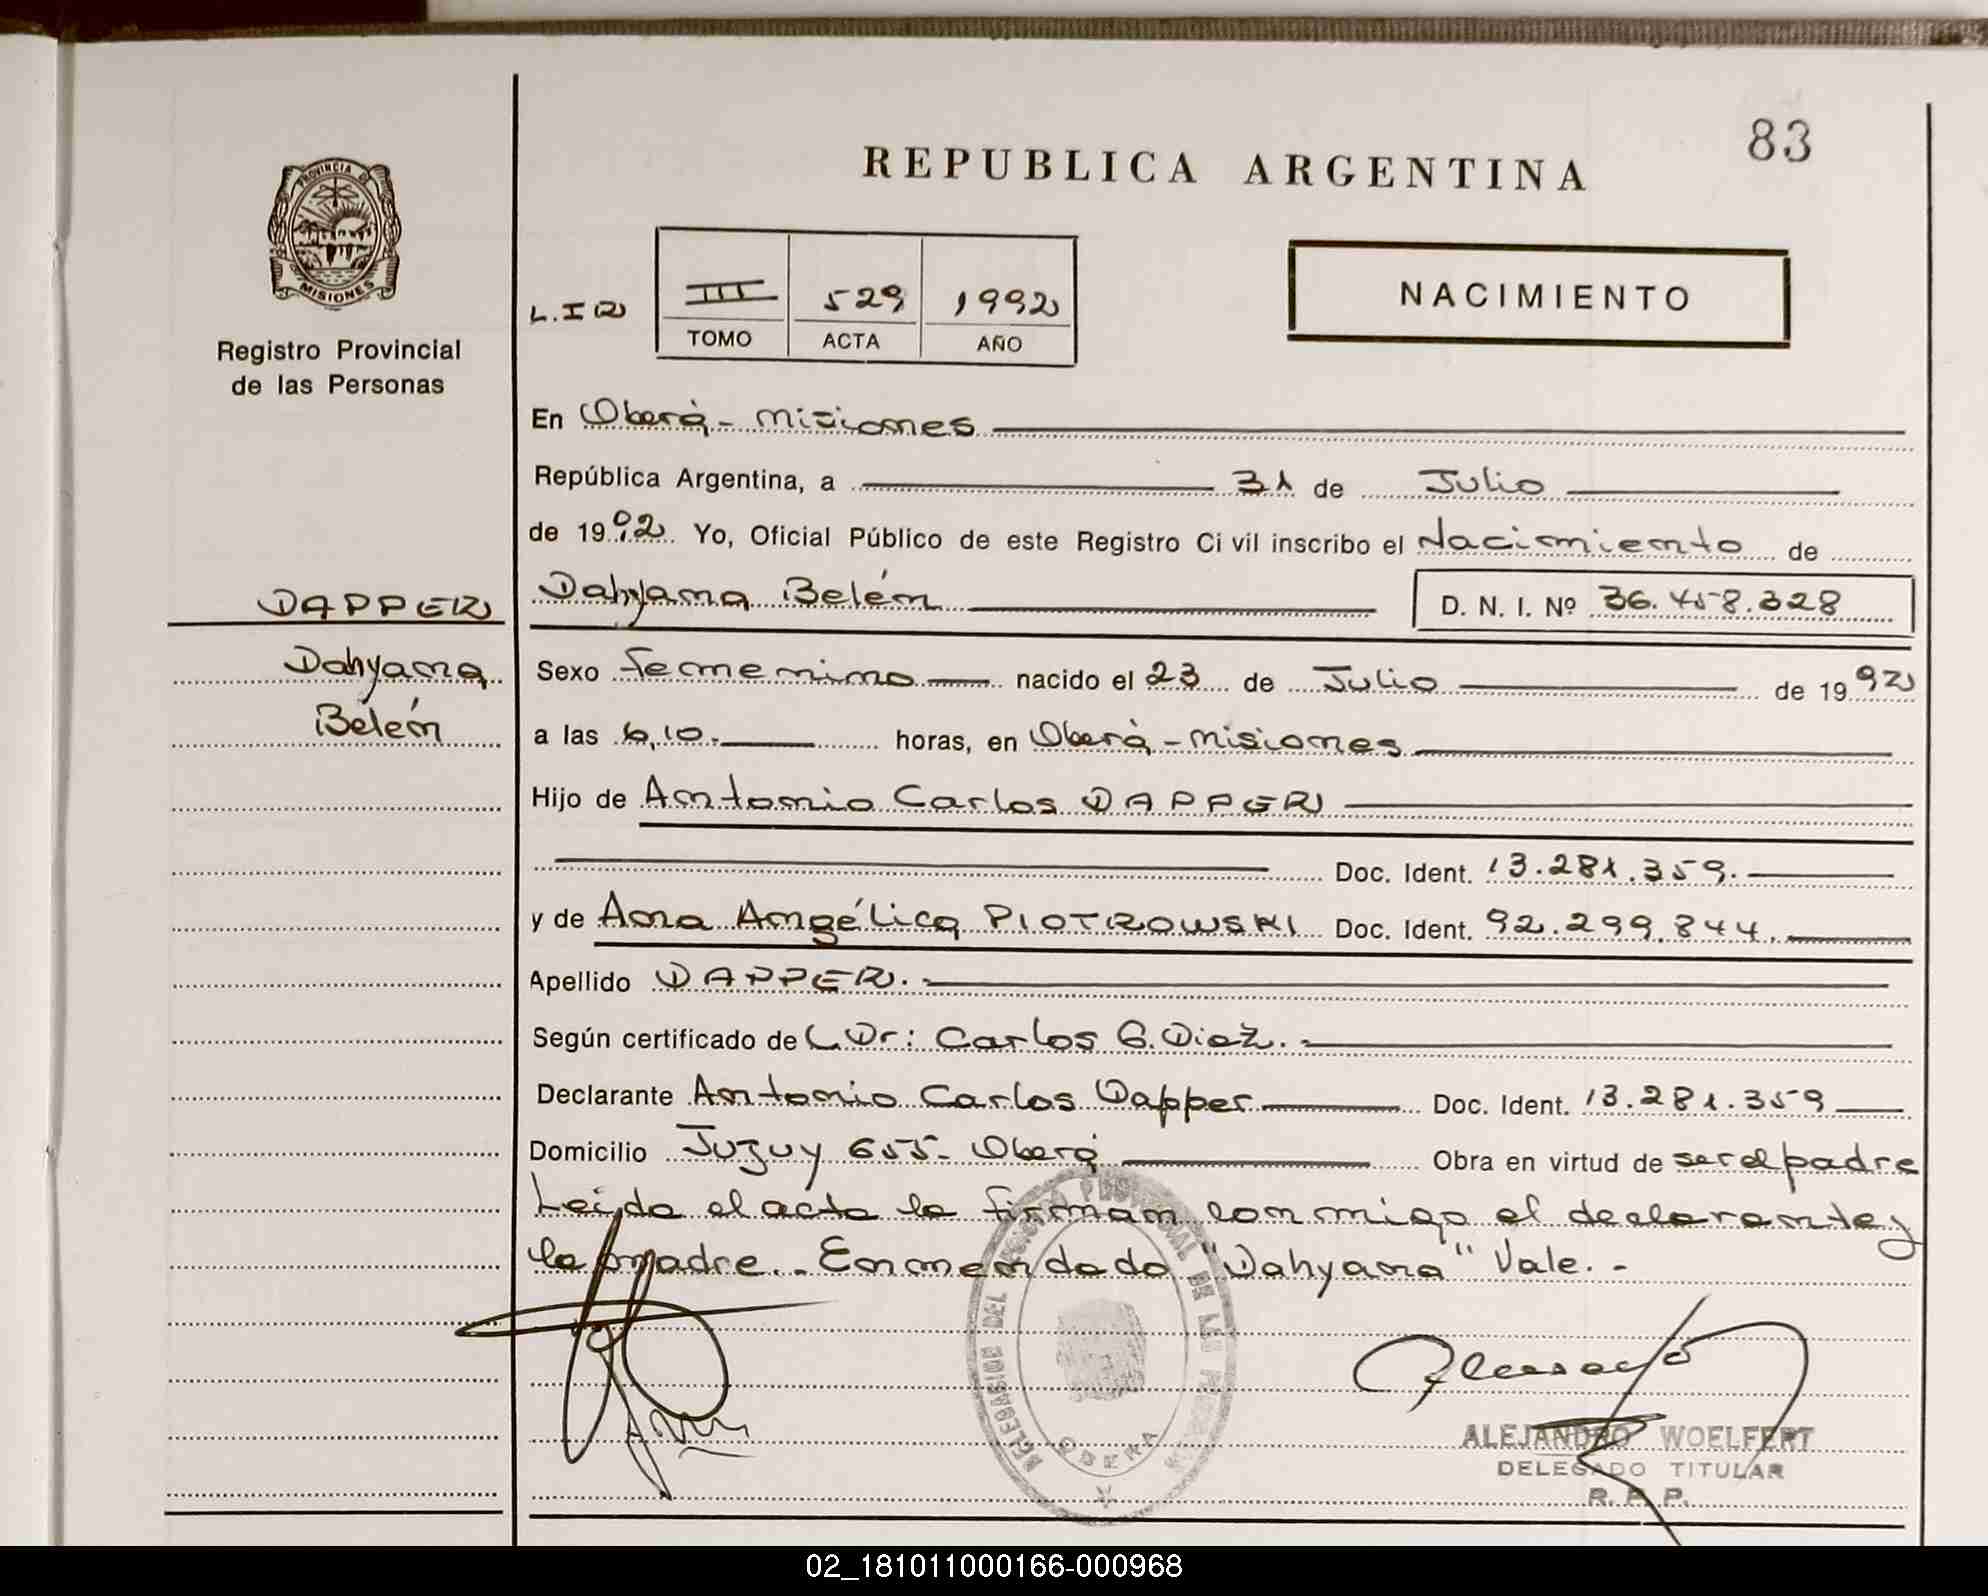 83
REPUBLICA ARGENTINA
PROVINCIA DE
MISIONES
Registro Provincial
de las Personas
L. I (2)
III 529 1992
TOMO ACTA AÑO
NACIMIENTO
En Oberá - Misiones
República Argentina, a 31 de Julio
de 1992. Yo, Oficial Público de este Registro Civil inscribo el Nacimiento de
DAPPER
Dahyana Belén
Dahyana Belén D. N. I. Nº 36.458.328
Sexo femenino nacido el 23 de Julio de 1992
a las 6,10. horas, en Oberá - Misiones
Hijo de Antonio Carlos DAPPER
Doc. Ident. 13.281.359.
y de Ana Angélica PIOTROWSKI Doc. Ident. 92.299.844.
Apellido DAPPER.-
Según certificado de L Dr: Carlos G. Diez.-
Declarante Antonio Carlos Dapper Doc. Ident. 13.281.359
Domicilio Jujuy 655- Oberá Obra en virtud de ser el padre
Leida el acta la firman conmigo el declarante y
la madre.- Enmendado "Dahyana" Vale.-
DELEGACION DEL REGISTRO PROVINCIAL DE LAS PERSONAS
OBERA
ALEJANDRO WOELFERT
DELEGADO TITULAR
R. P. P.
02_181011000166-000968